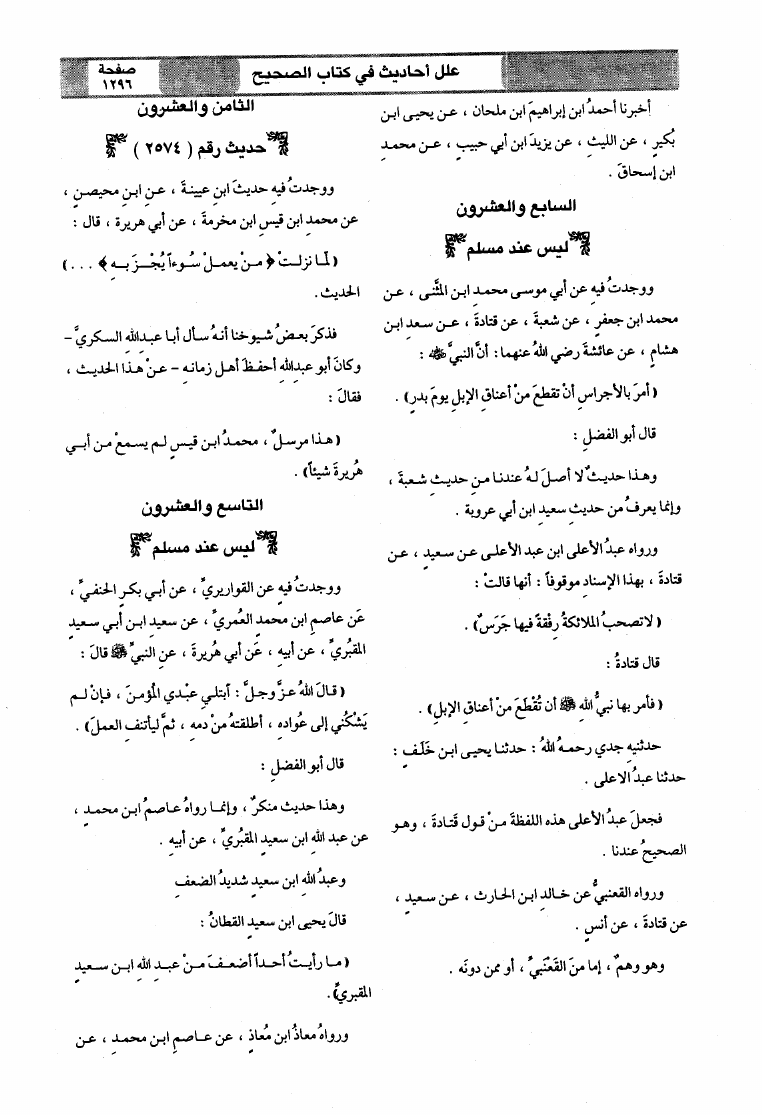 علل أحاديث في كتاب الصحيح
صفحة
١٢٩٦
أخبرنا أحمدُ ابن إبراهيمَ ابن ملحان ، عـن يحيى ابن
بُكيرٍ ، عن الليثِ ، عن يزيدَ ابن أبي حبيبٍ ، عـن محمـدِ
ابن إسحاقَ .
السابع والعشرون
ليس عند مسلم
ووجدتُ فيه عن أبي موسى محمـدِ ابـن المثَّنى ، عن
محمد ابن جعفرٍ ، عن شعبةَ ، عن قتادةَ ، عـن سـعدِ ابـن
هشامٍ ، عن عائشةَ رضي اللهُ عنهما : أنَّ النبيَّ ﷺ :
( أمرَ بالأجراسِ أنْ تقطعَ منْ أعناقِ الإبلِ يومَ بدرٍ ) .
قال أبو الفضلِ :
وهـذا حديثٌ لا أصـلَ لـهُ عندنا مـن حديثِ شعبةَ ،
وإنما يعرفُ من حديثِ سعيدِ ابن أبي عروبة .
ورواه عبدُ الأعلى ابن عبد الأعلـى عـن سعيدٍ ، عن
قتادةَ ، بهذا الإسنادِ موقوفاً : أنها قالتْ :
( لاتصحبُ الملائكةُ رِفْقةً فيها جَرَسٌ ) .
قال قتادةُ :
( فأمر بها نبيُّ اللهِ ﷺ أن تُقْطَعَ منْ أعناقِ الإبلِ ) .
حدثنيه جدي رحمـهُ اللهُ : حدثنا يحيـى ابـن خَلَـفٍ :
حدثنا عبدُ الاعلى .
فجعلَ عبدُ الأعلى هذه اللفظةَ مـنْ قـولِ قَتـادةَ ، وهـو
الصحيحُ عندنا .
ورواه القعنبيُّ عن خـالدِ ابـن الحـارث ، عـن سـعيدٍ ،
عن قتادةَ ، عن أنسٍ .
وهو وهمٌ ، إما منَ القَعْنَبيِّ ، أو ممن دونَه .
الثامن والعشرون
حديث رقم ( ٢٥٧٤ )
ووجدتُ فيهِ حديثَ ابنِ عيينةَ ، عـن ابنِ محيصنٍ ،
عن محمدِ ابن قيسِ ابن مخرمةَ ، عن أبي هريرة ، قال :
( لمَا نزلـتْ ﴿ مـنْ يعمـلْ سُـوءاً يُجْـزَ بـهِ ﴾ . . . )
الحديث .
فذكرَ بعـضُ شـيوخنا أنـهُ سـألَ أبـا عبـدالله السـكريَّ –
وكانَ أبو عبداللهِ أحفـظَ أهـل زمانـهِ – عـنْ هـذا الحديـث ،
فقالَ :
( هـذا مرسـلٌ ، محمـدُ ابـن قيـسٍ لـم يسمـعْ مـن أبـي
هُريرةَ شيئاً ) .
التاسع والعشرون
ليس عند مسلم
ووجدتُ فيهِ عن القواريريِّ ، عن أبي بكرٍ الحنفيِّ ،
عَن عاصمِ ابن محمدٍ العُمريِّ ، عن سعيدِ ابـن أبـي سـعيدٍ
المقبُريِّ ، عن أبيهِ ، عَن أبي هُريرةَ ، عن النبيِّ ﷺ قالَ :
( قـالَ اللهُ عـزَّ وجـلَّ : أبتلـي عبْـدي المؤمـنَ ، فـإنْ لـم
يَشْكُني إلى عُواده ، أطلقتهُ منْ دمه ، ثمَّ ليأتنفِ العملَ ) .
قال أبو الفضلِ :
وهذا حديث منكرٌ ، وإنمـا رواهُ عـاصمُ ابـن محمـدٍ ،
عن عبد اللهِ ابن سعيدٍ المقبُريِّ ، عن أبيهِ .
وعبدُ اللهِ ابن سعيدٍ شديدُ الضعفِ
قالَ يحيى ابن سعيدٍ القطانُ :
( مـا رأيـتُ أحـداً أضعـفَ مـنْ عبـدِ اللهِ ابـن سـعيدٍ
المقبريِّ ) .
ورواهُ معاذُ ابنُ مُعاذٍ ، عن عـاصمِ ابـن محمـدٍ ، عن